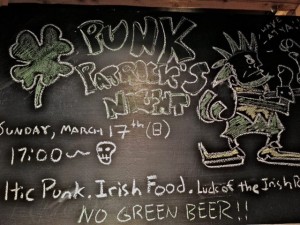 PUNK
PATRICK'S
NIGHT
SUNDAY, MARCH 17th (日)
17:00〜
ltic Punk. Irish Food. Luck of the Irish R
NO GREEN BEER!!